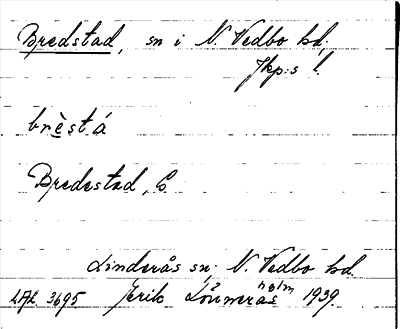 Bredstad, sn i N. Vedbo hd,
Jkp:s l.
brèstá
Bredestad, C.
Linderås sn, N. Vedbo hd.
LAL 3695 Jerik Lönneråsholm 1939.